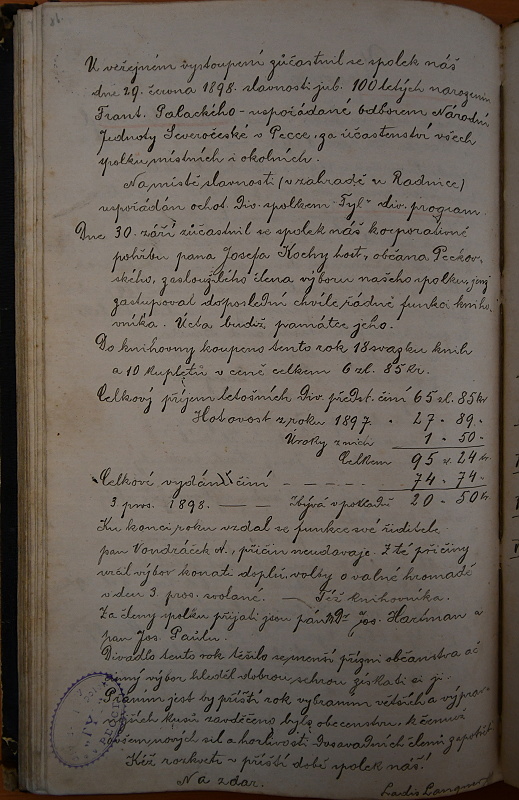 V veřejném vystoupení zúčastnil se spolek náš
dne 29. června 1898. slavnosti jub. 100letých narozenin
Frant. Palackého - uspořádané odborem Národní
Jednoty Severočeské v Pecce, za účastenství všech
spolků místních i okolních.
Na místě slavnosti (v zahradě u Radnice)
uspořádán ochot. div. spolkem "Tyl" div. program.
Dne 30. září zúčastnil se spolek náš korporativně
pohřbu pana Josefa Kochy host., občana Peckov-
ského, zasloužilého člena výboru našeho spolku, jenž
zastupoval do poslední chvíle, řádně funkci kniho-
vníka. Úcta budiž památce jeho.
Do knihovny koupeno tento rok 18 svazků knih
a 10 kupletů v ceně celkem 6 zl. 85 kr.
Celkový příjem letošních div. předst. činí 65 zl. 85 kr
Hotovost z roku 1897. - 27 - 89 -
Úroky z nich 1 - 50 -
Celkem 95 z. 24 kr
Celkové vydání činí - - - - 74 - 74 -
3 pros. 1898. - - zbývá v pokladně 20 - 50 kr
Ku konci roku vzdal se funkce své ředitele
pan Vondráček A., příčin neudávaje. Z té příčiny
určil výbor konati doplň. volby o valné hromadě
v den 3. pros. svolané. - Též knihovníka.
Za členy spolku přijati jsou páni Dr Jos. Hariman a
pan Jos. Paulu.
Divadlo tento rok těšilo se menší přízni občanstva ač
výbor hleděl dobrou sehrou získati si ji.
Přáním jest by příští rok vybraním větších a výprav-
nějších kusů zavděčeno bylo obecenstvu, k čemuž
ovšem nových sil a horlivosti dosavadních členů zapotřebí
Kéž rozkvete v příští době spolek náš!
Na zdar.
Ladis Langner